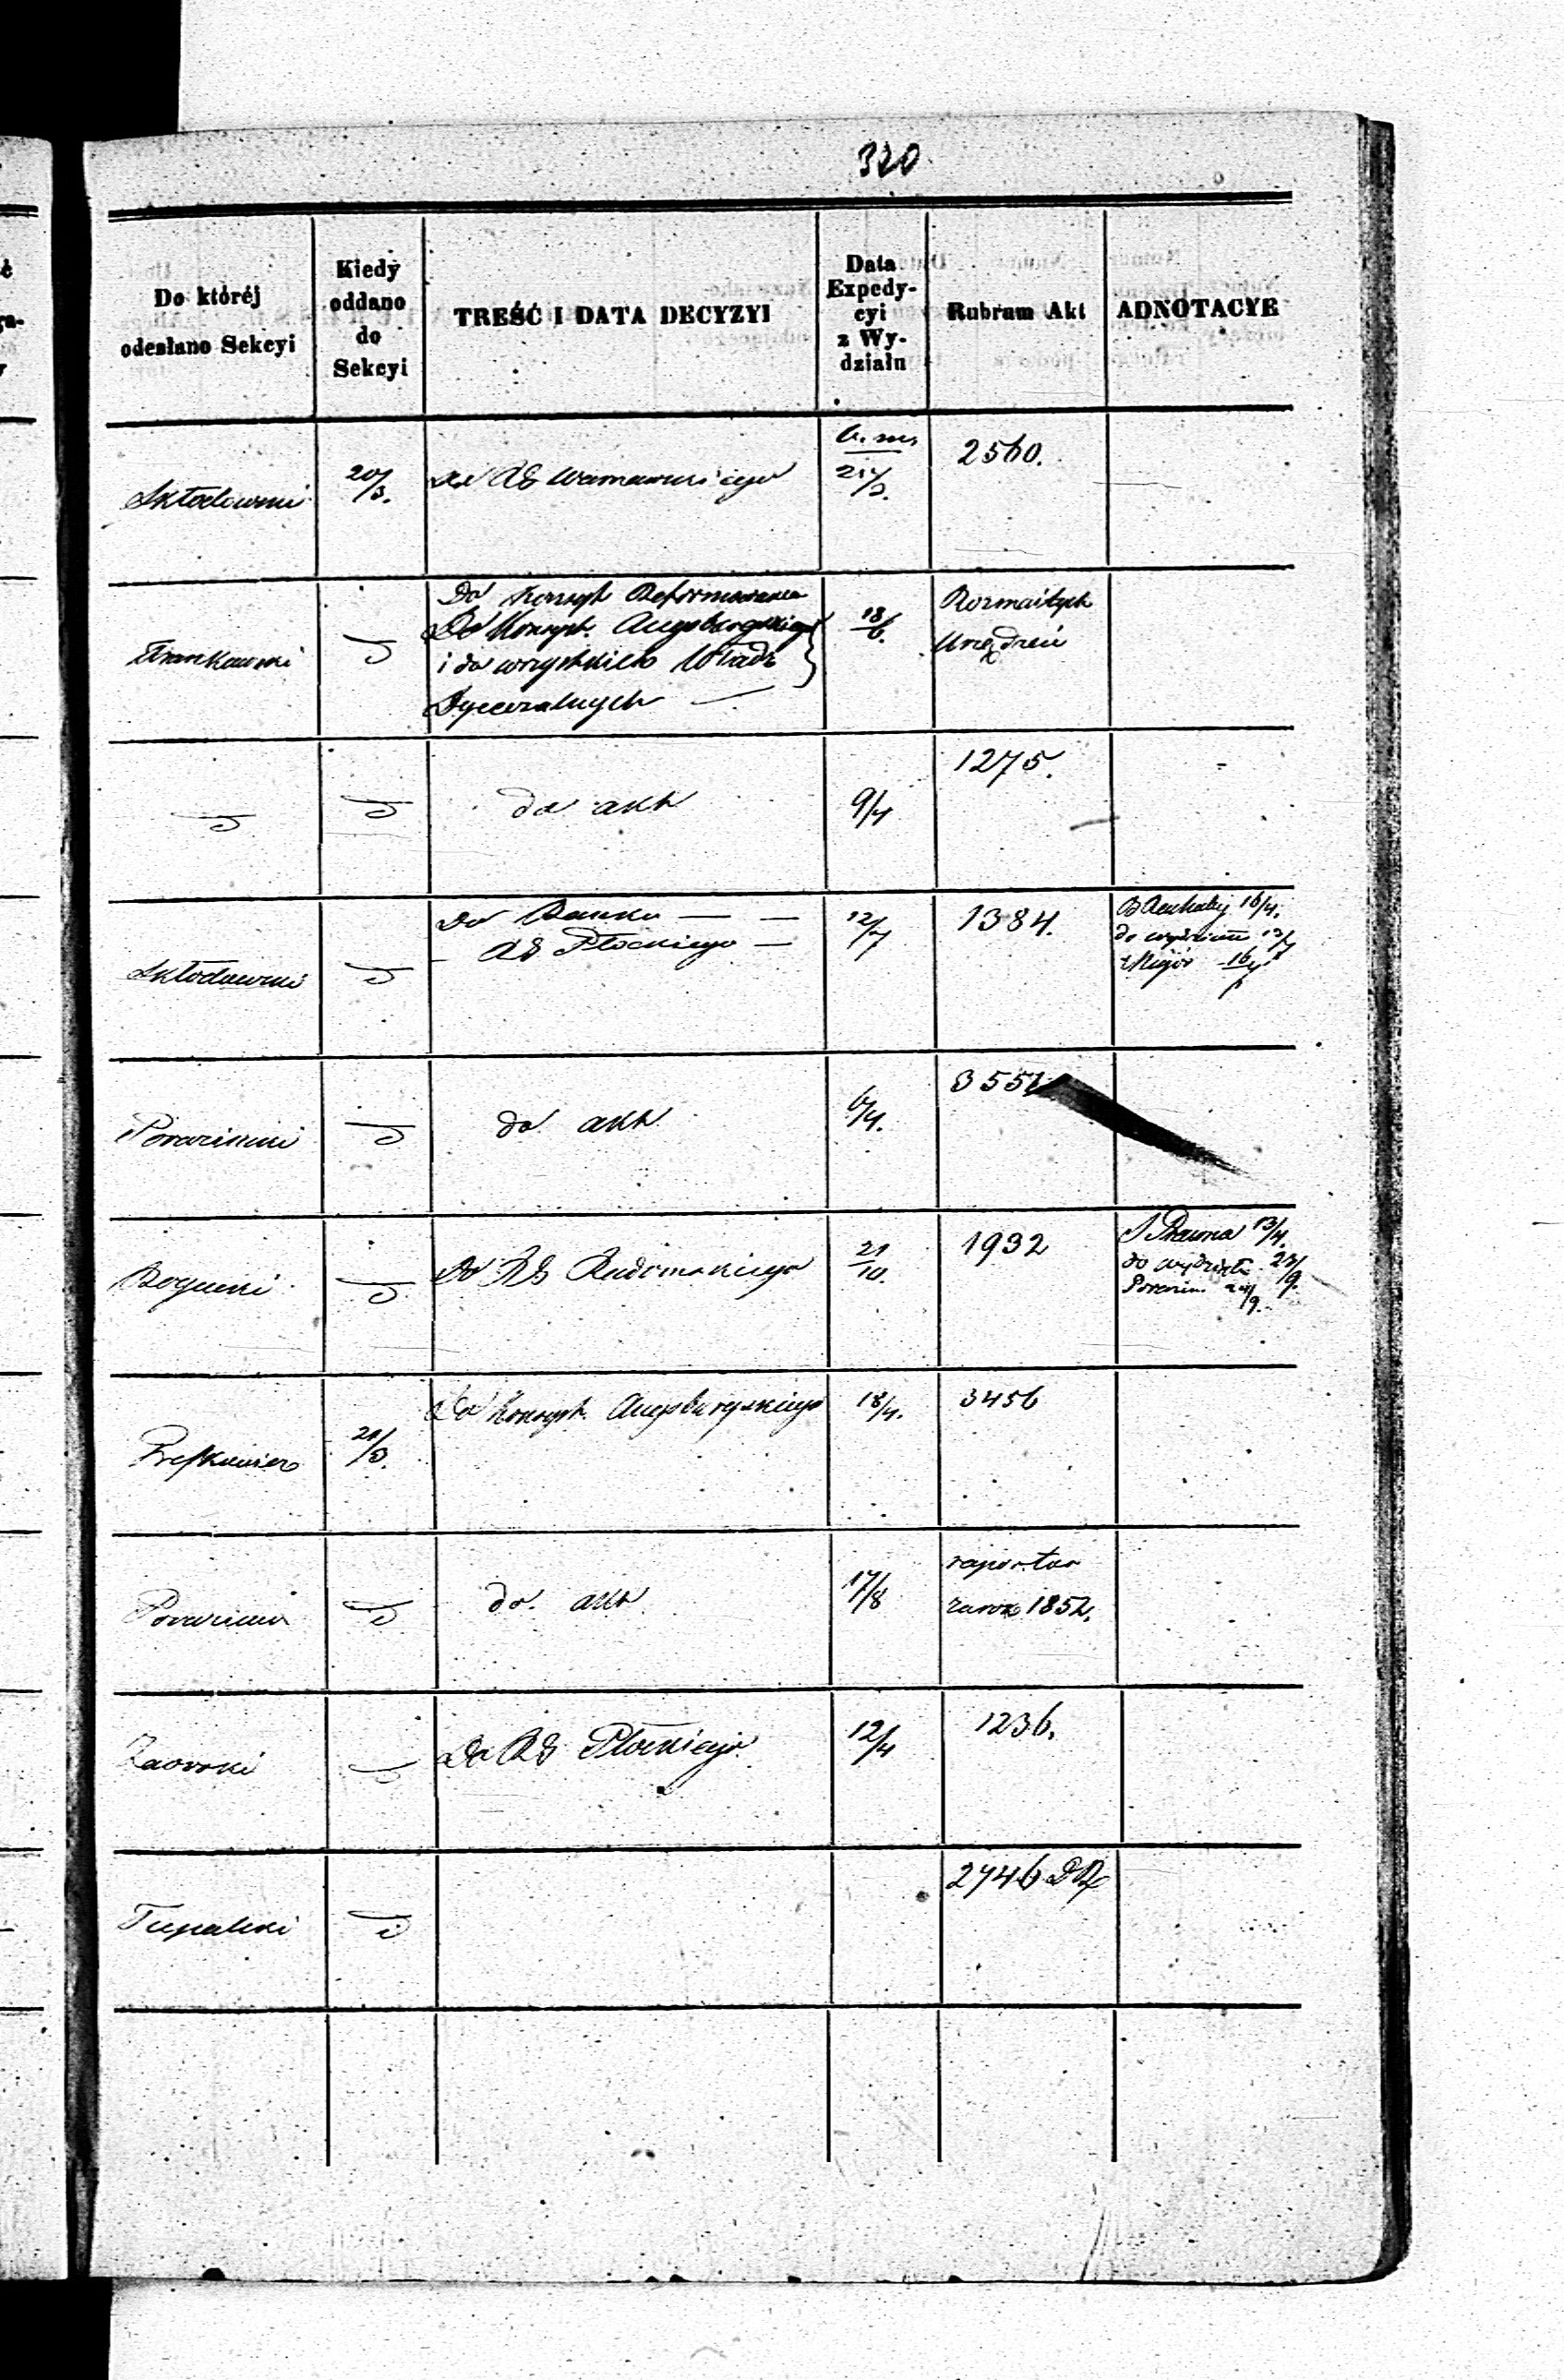 320
Do któréj
odesłano Sekcyi
Kiedy
oddano
do
Sekcyi
TREŚĆ I DATA DECYZYI
Data
Expedy-
cyi
z Wy-
działu
Rubrum Akt
ADNOTACYE
Skłodowski
20/3.
Do RG Warszawskiego
21/3.
2560.
Frankowski
Do Konsyst. Reformowan.
Do Konsyst. Augsburgskiego
i do wszystkich Władz
Dyecezalnych —
18/6.
Rozmaitych
Urządzeń
do akt
9/4
1275.
Skłodowski
Do Banku — —
- RG Płockiego —
12/7
1384.
B Rachuby 16/4.
do wydziału 12/7
16/4
do akt
6/4.
Bogucki
Do RG Radomskiego
21/10.
1932
S Prawna 13/4.
do wydziału 23/9.
24/9.
21/3.
Do Konsyst. Augsburgskiego
18/4.
3456
do akt
17/8
raportów
za rok 1852.
Zaorski
Do RG Płockiego
12/4
1236.
Tupalski
2746